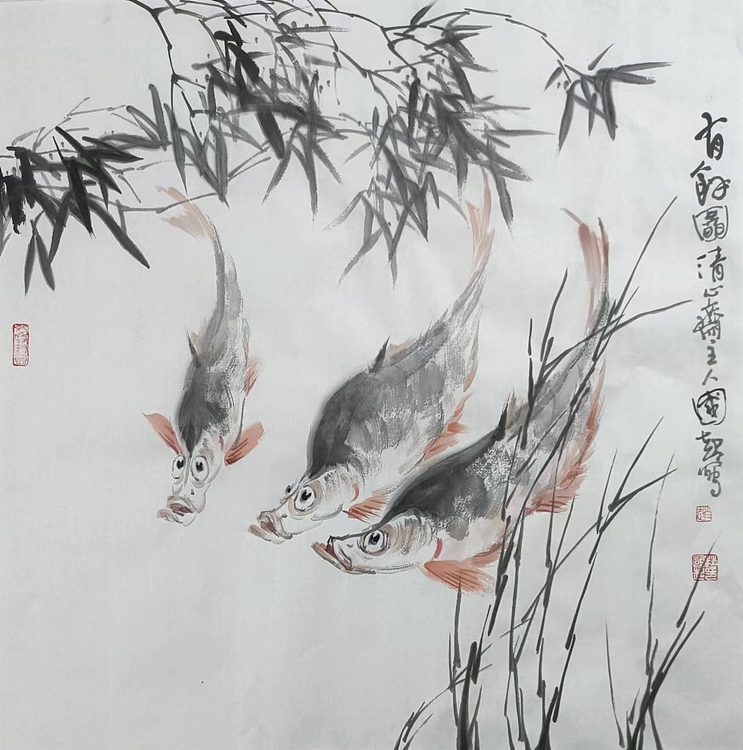 有餘圖清心齋主人國超寫